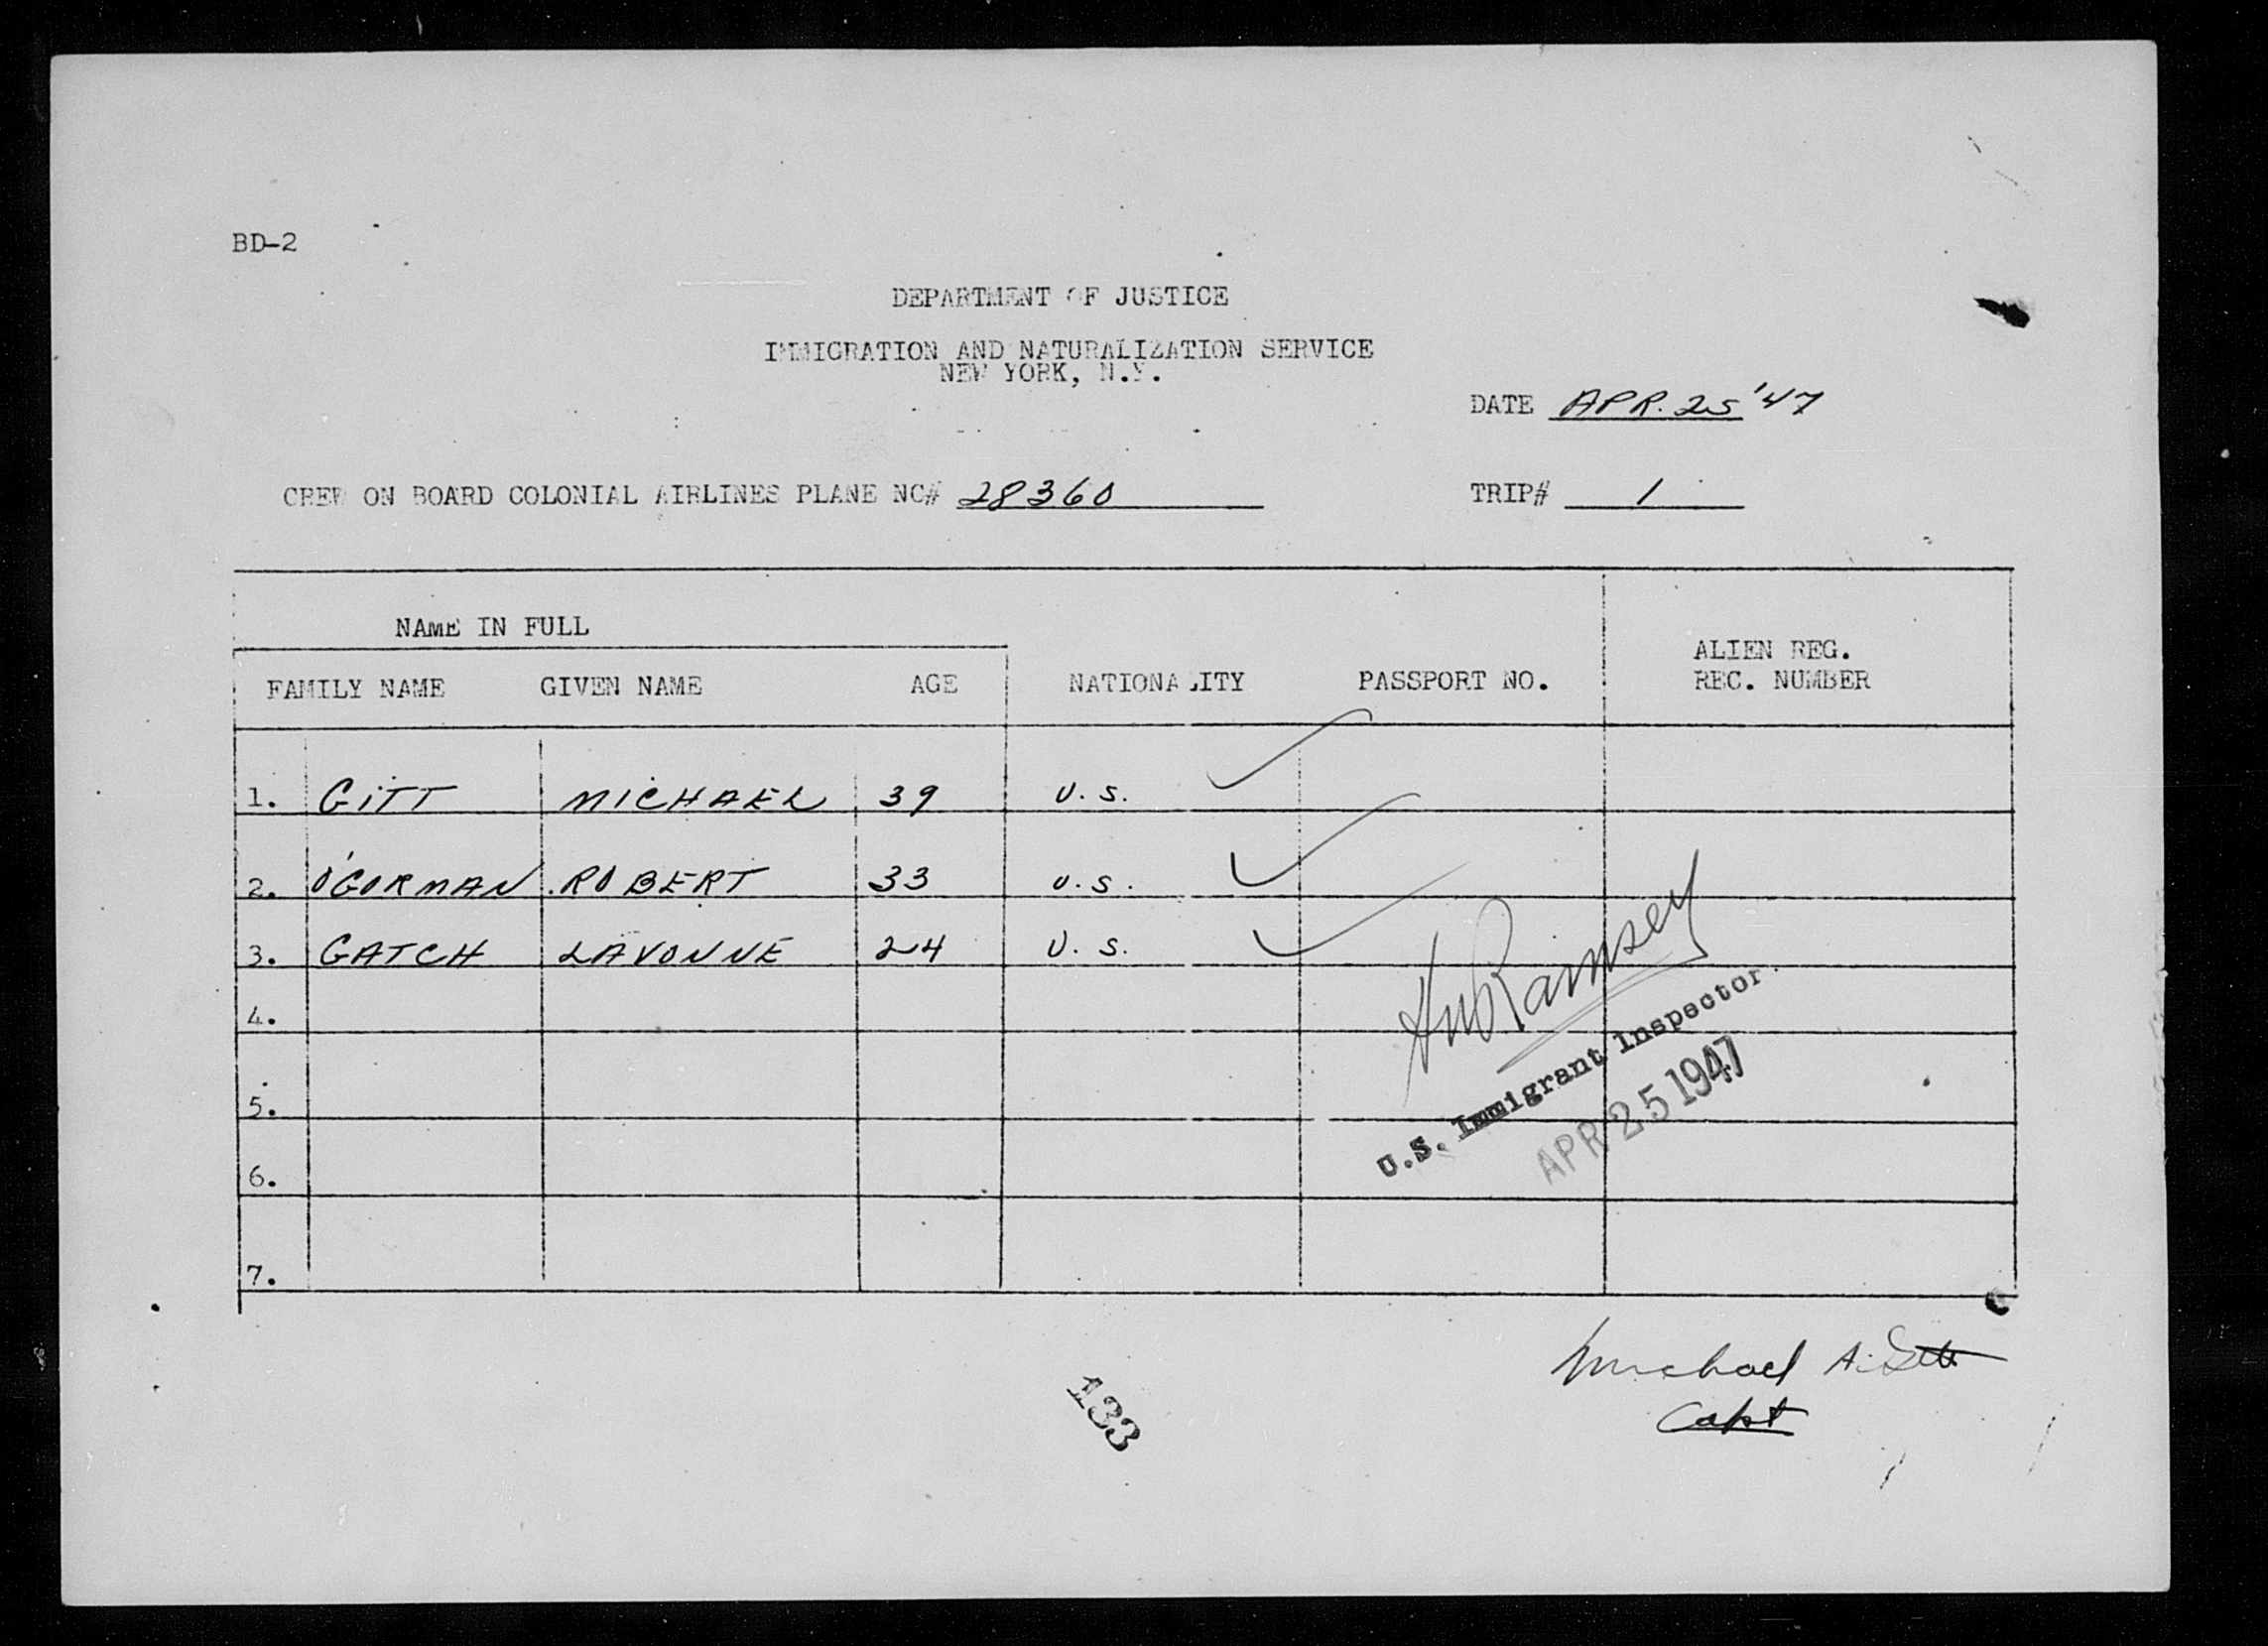 BD-2
DEPARTMENT OF JUSTICE
IMMIGRATION AND NATURALIZATION SERVICE
NEW YORK, N.Y.
DATE APR. 25 '47
CREW ON BOARD COLONIAL AIRLINES PLANE NC# 28360 TRIP# 1
NAME IN FULL
FAMILY NAME GIVEN NAME AGE NATIONALITY PASSPORT NO. ALIEN REG. REC. NUMBER
1. GITT MICHAEL 39 U.S.
2. O'GORMAN ROBERT 33 U.S.
3. GATCH LAVONNE 24 U.S.
4.
5.
6.
7.
Ramsey
U.S. Immigrant Inspector.
APR 25 1947
Michael A. Gitt
Capt
133